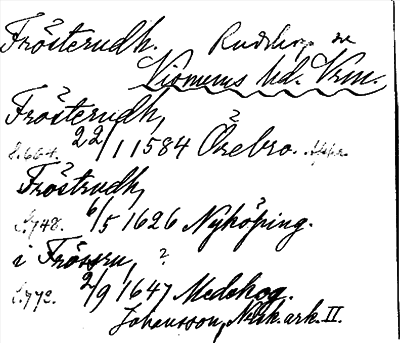 Frösterudh. Rudskoga sn
Visnums hd. Vrm.
?
Frösterudh, ?
S. 664. 22/1 1584 Örebro.
?
Fröstrudh,
S. 748. 6/5 1626 Nyköping.
i Frössru, ?
S. 772. 2/9 1647 Medskog.
Johansson, Norsk. ark. II.